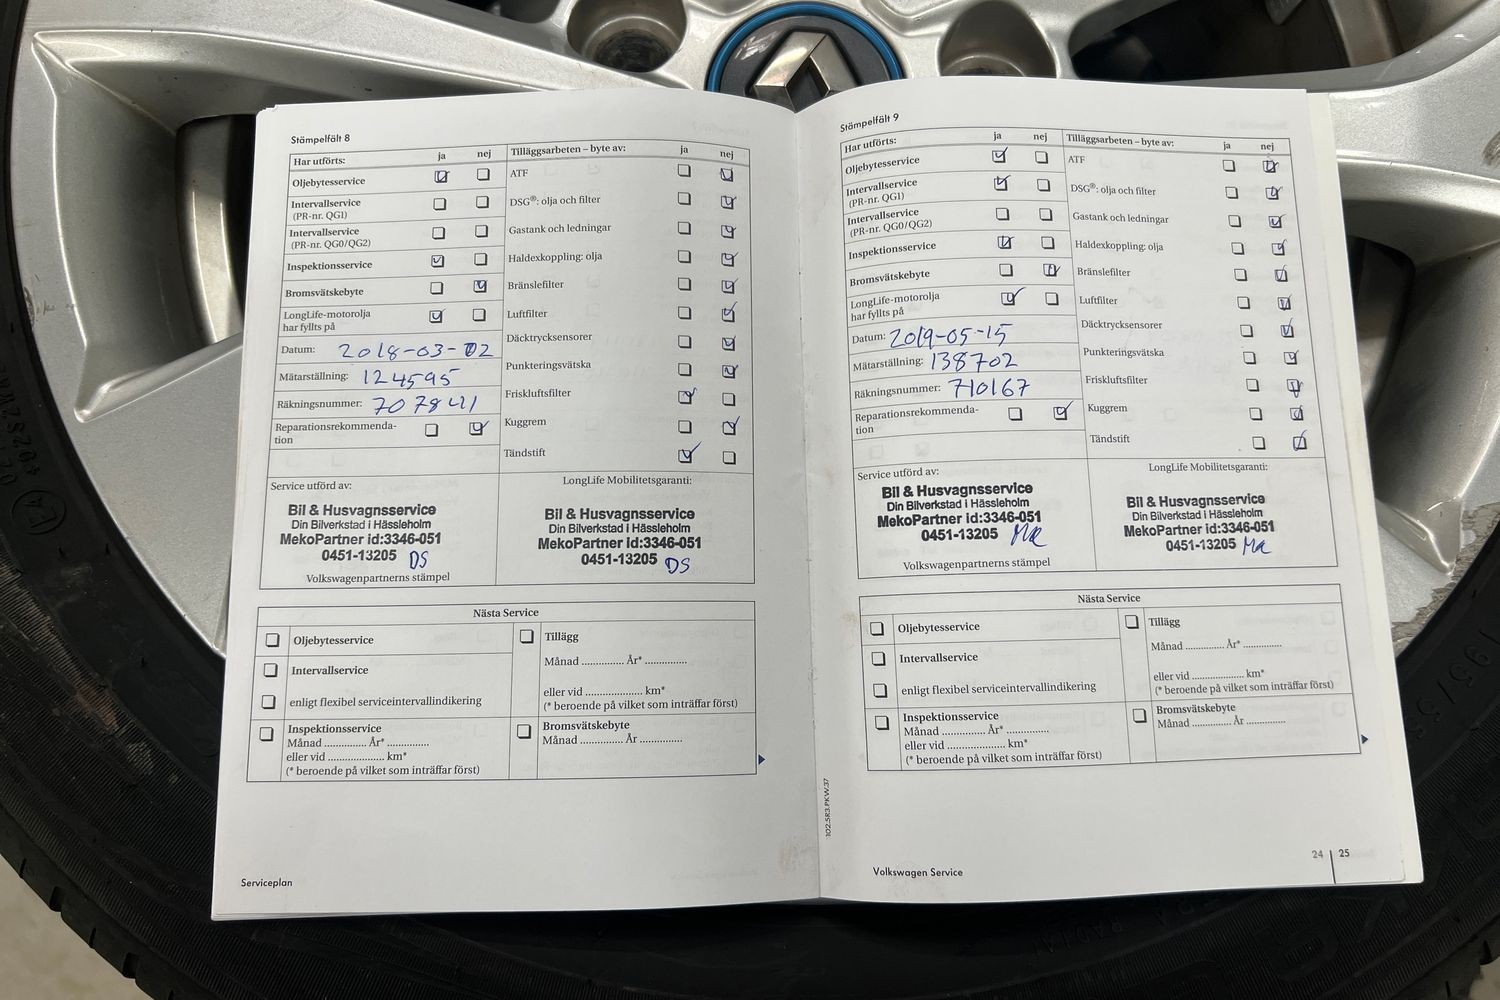 Stämpelfält 8
Har utförts: ja nej
Oljebytesservice
Intervallservice
(PR-nr. QG1)
Intervallservice
(PR-nr. QG0/QG2)
Inspektionsservice
Bromsvätskebyte
LongLife-motorolja
har fyllts på
Datum: 2018-03-02
Mätarställning: 124595
Räkningsnummer: 707841
Reparationsrekommenda-
tion
Tilläggsarbeten – byte av: ja nej
ATF
DSG®: olja och filter
Gastank och ledningar
Haldexkoppling: olja
Bränslefilter
Luftfilter
Däcktrycksensorer
Punkteringsvätska
Friskluftsfilter
Kuggrem
Tändstift
Service utförd av:
Bil & Husvagnsservice
Din Bilverkstad i Hässleholm
MekoPartner id:3346-051
0451-13205 DS
Volkswagenpartnerns stämpel
LongLife Mobilitetsgaranti:
Bil & Husvagnsservice
Din Bilverkstad i Hässleholm
MekoPartner id:3346-051
0451-13205 DS
Nästa Service
Oljebytesservice
Intervallservice
enligt flexibel serviceintervallindikering
Inspektionsservice
Månad .............. År* ..............
eller vid .................... km*
(* beroende på vilket som inträffar först)
Tillägg
Månad .............. År* ..............
eller vid .................... km*
(* beroende på vilket som inträffar först)
Bromsvätskebyte
Månad .............. År ..............
Serviceplan
Stämpelfält 9
Har utförts: ja nej
Oljebytesservice
Intervallservice
(PR-nr. QG1)
Intervallservice
(PR-nr. QG0/QG2)
Inspektionsservice
Bromsvätskebyte
LongLife-motorolja
har fyllts på
Datum: 2019-05-15
Mätarställning: 138702
Räkningsnummer: 710167
Reparationsrekommenda-
tion
Tilläggsarbeten – byte av: ja nej
ATF
DSG®: olja och filter
Gastank och ledningar
Haldexkoppling: olja
Bränslefilter
Luftfilter
Däcktrycksensorer
Punkteringsvätska
Friskluftsfilter
Kuggrem
Tändstift
Service utförd av:
Bil & Husvagnsservice
Din Bilverkstad i Hässleholm
MekoPartner id:3346-051
0451-13205
Volkswagenpartnerns stämpel
LongLife Mobilitetsgaranti:
Bil & Husvagnsservice
Din Bilverkstad i Hässleholm
MekoPartner id:3346-051
0451-13205
Nästa Service
Oljebytesservice
Intervallservice
enligt flexibel serviceintervallindikering
Inspektionsservice
Månad .............. År* ..............
eller vid .................... km*
(* beroende på vilket som inträffar först)
Tillägg
Månad .............. År* ..............
eller vid .................... km*
(* beroende på vilket som inträffar först)
Bromsvätskebyte
Månad .............. År ..............
102.5R3.PKW.37
Volkswagen Service
24 25